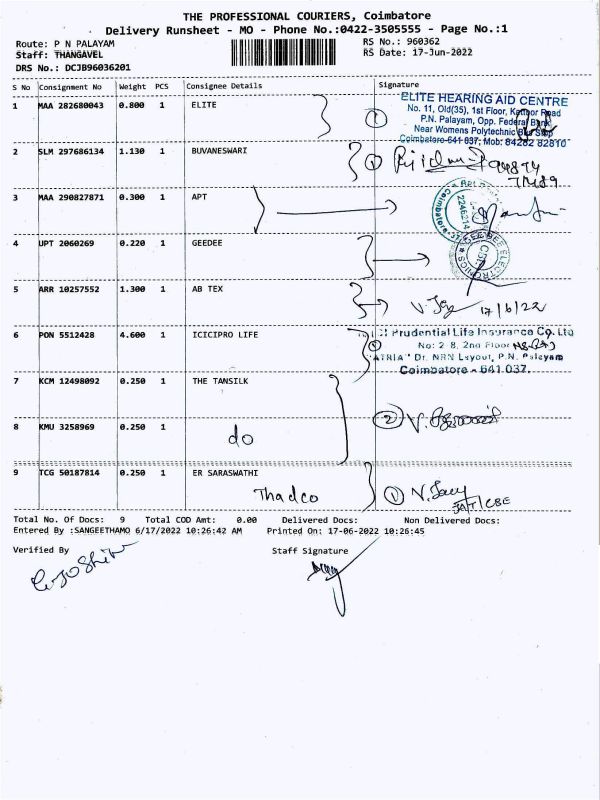 THE PROFESSIONAL COURIERS, Coimbatore
Delivery Runsheet - MO - Phone No.:0422-3505555 - Page No.:1
Route: P N PALAYAM
RS No.: 960362
Staff: THANGAVEL
RS Date: 17-Jun-2022
DRS No.: DCJB96036201
S No Consignment No Weight PCS Consignee Details Signature
1 MAA 282680043 0.800 1 ELITE
1
ELITE HEARING AID CENTRE
No. 11, Old(35), 1st Floor, Kannor Road
P.N. Palayam, Opp. Federal Bank
Near Womens Polytechnic Bus Stop
Coimbatore-641 037; Mob: 84282 82810
2 SLM 297686134 1.130 1 BUVANESWARI
1
3 MAA 290827871 0.300 1 APT
4 UPT 2060269 0.220 1 GEEDEE
GEE DEE ELECTRONICS
5 ARR 10257552 1.300 1 AB TEX
17/6/22
6 PON 5512428 4.600 1 ICICIPRO LIFE
Prudential Life Insurance Co. Ltd
No: 2 8, 2nd Floor
"ATRIA" Dr. NRN Layout, P.N. Palayam
Coimbatore - 641 037.
7 KCM 12498092 0.250 1 THE TANSILK
2
8 KMU 3258969 0.250 1
do
9 TCG 50187814 0.250 1 ER SARASWATHI
Thadco
1
Total No. Of Docs: 9 Total COD Amt: 0.00 Delivered Docs: Non Delivered Docs:
Entered By :SANGEETHAMO 6/17/2022 10:26:42 AM Printed On: 17-06-2022 10:26:45
Verified By
Staff Signature